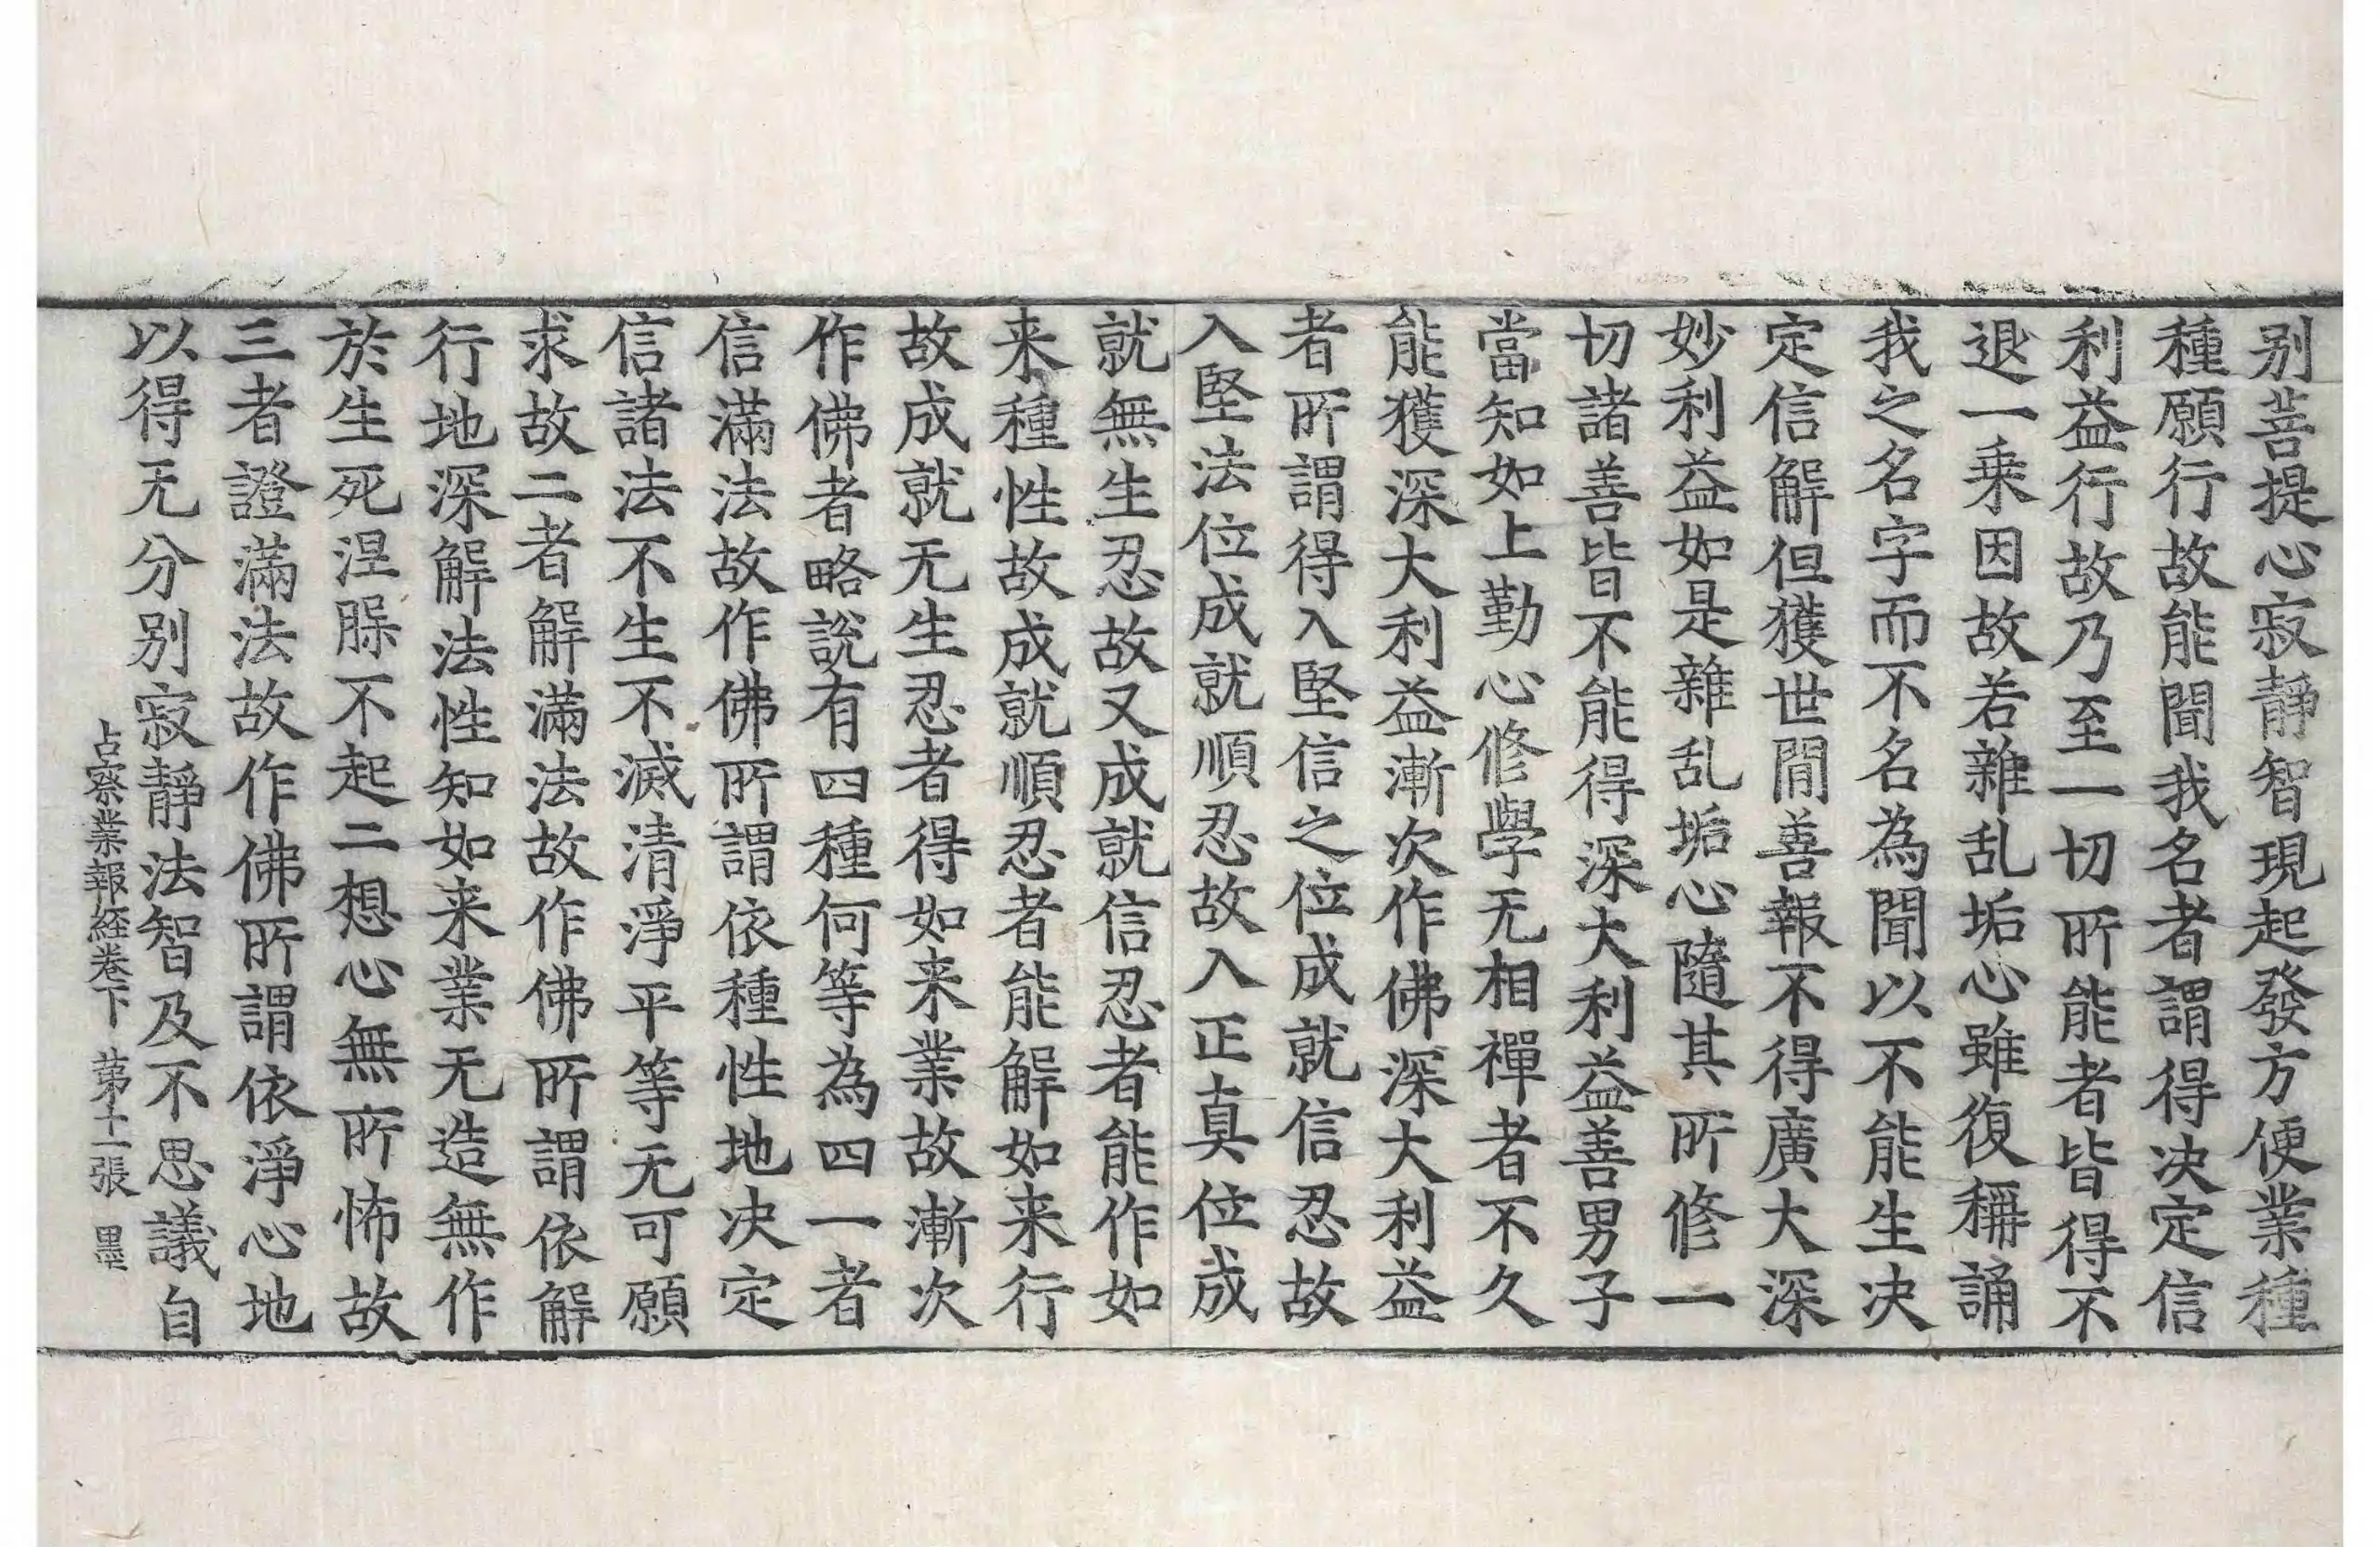 别菩提心寂靜智現起發方便業種
種願行故能聞我名者謂得决定信
利益行故乃至一切所能者皆得不
退一乗因故若雜乱垢心雖復稱誦
我之名字而不名為聞以不能生决
定信解但獲世閒善報不得廣大深
妙利益如是雜乱垢心隨其所修一
切諸善皆不能得深大利益善男子
當知如上勤心修學无相禪者不久
能獲深大利益漸次作佛深大利益
者所謂得入堅信之位成就信忍故
入堅法位成就順忍故入正真位成
就無生忍故又成就信忍者能作如
来種性故成就順忍者能解如来行
故成就无生忍者得如来業故漸次
作佛者略說有四種何等為四一者
信滿法故作佛所謂依種性地决定
信諸法不生不滅清淨平等无可願
求故二者解滿法故作佛所謂依解
行地深解法性知如来業无造無作
於生死涅槃不起二想心無所怖故
三者證滿法故作佛所謂依淨心地
以得无分别寂靜法智及不思議自
占察業報経卷下 苐十一張 墨